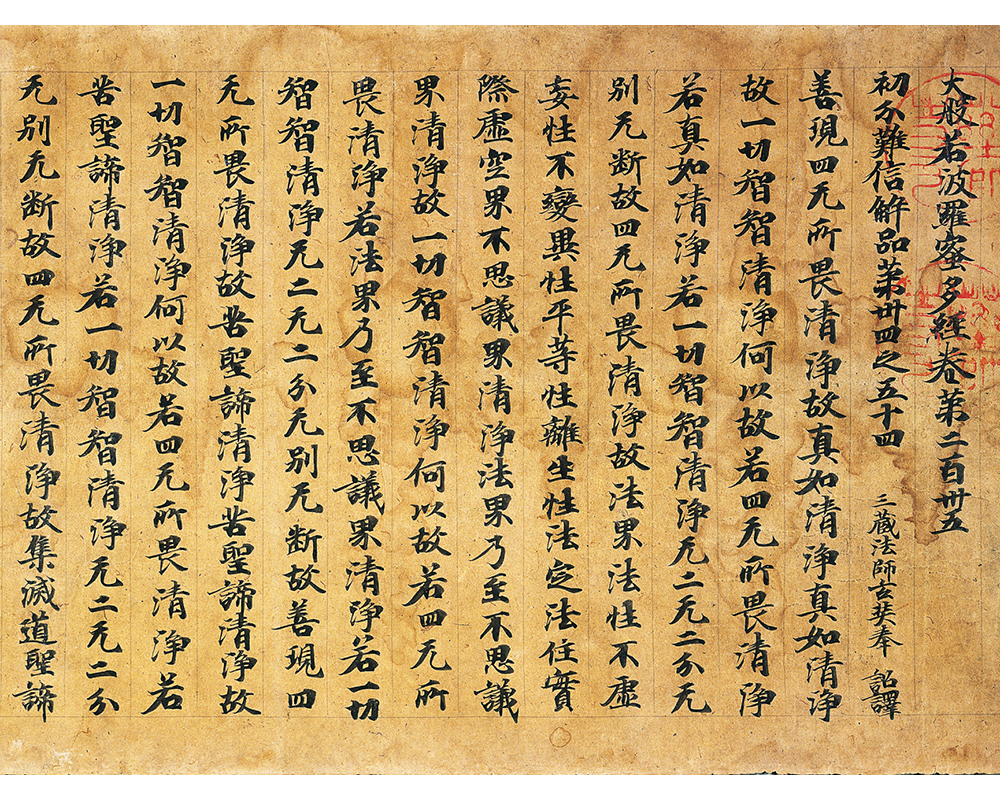 大般若波羅蜜多經卷第二百卅五
初分難信解品第卅四之五十四 三蔵法師玄奘奉 詔譯
善現四无所畏清浄故真如清浄真如清浄
故一切智智清浄何以故若四无所畏清浄
若真如清浄若一切智智清浄无二无二分无
別无断故四无所畏清浄故法界法性不虛
妄性不變異性平等性離生性法定法住實
際虛空界不思議界清浄法界乃至不思議
界清浄故一切智智清浄何以故若四无所
畏清浄若法界乃至不思議界清浄若一切
智智清浄无二无二分无別无断故善現四
无所畏清浄故苦聖諦清浄苦聖諦清浄故
一切智智清浄何以故若四无所畏清浄若
苦聖諦清浄若一切智智清浄无二无二分
无別无断故四无所畏清浄故集滅道聖諦